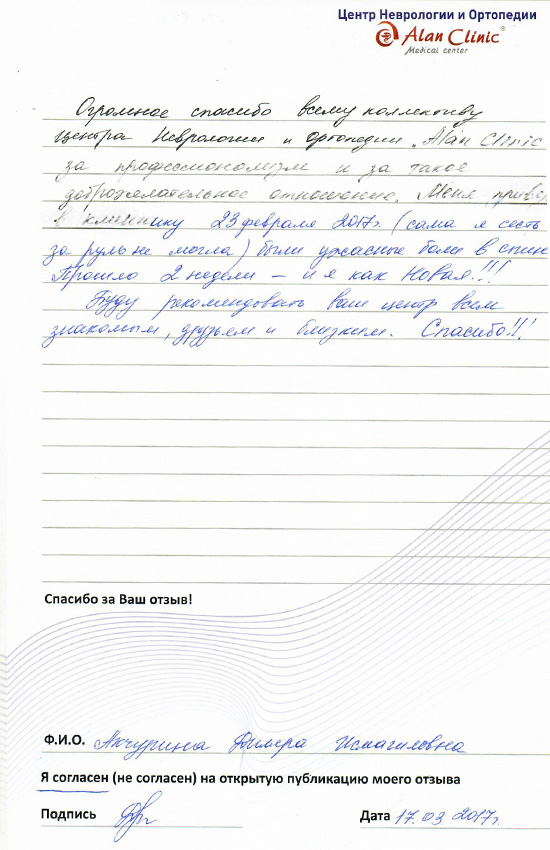 Центр Неврологии и Ортопедии
Alan Clinic®
Medical center
Огромное спасибо всему коллективу
центра Неврологии и ортопедии „Alan Clinic
за профессионализм и за такое
доброжелательное отношение. Меня приве
в клинику 23 февраля 2017г. (сама я сесть
за руль не могла) были ужасные боли в спин
Прошло 2 недели – и я как Новая.!!!
Буду рекомендовать ваш центр всем
знакомым, друзьям и близким. Спасибо!!!
Спасибо за Ваш отзыв!
Ф.И.О. Акчурина Дилера Исмагиловна
Я согласен (не согласен) на открытую публикацию моего отзыва
Подпись Дата 17.03 2017г.